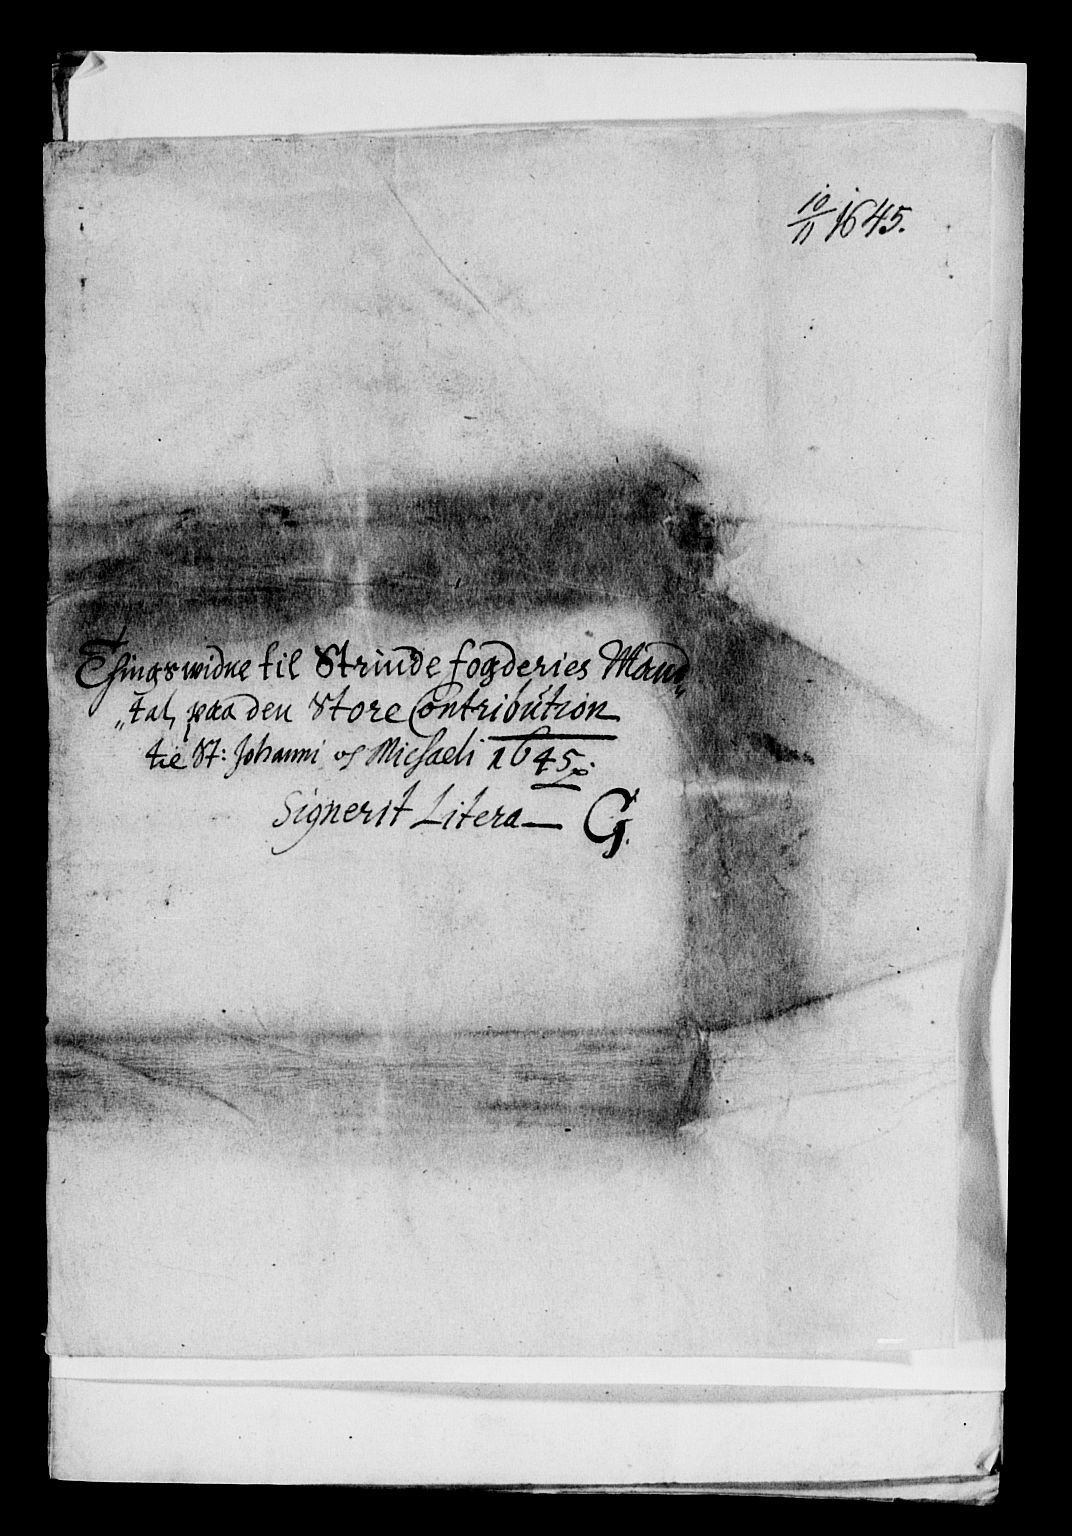 10/11 1645.
Thingswidne til Strinde fogderies Mand
„tal, paa den Store Contribution
til St: Johanni og Michaeli 1645
Signerit Litera — G.